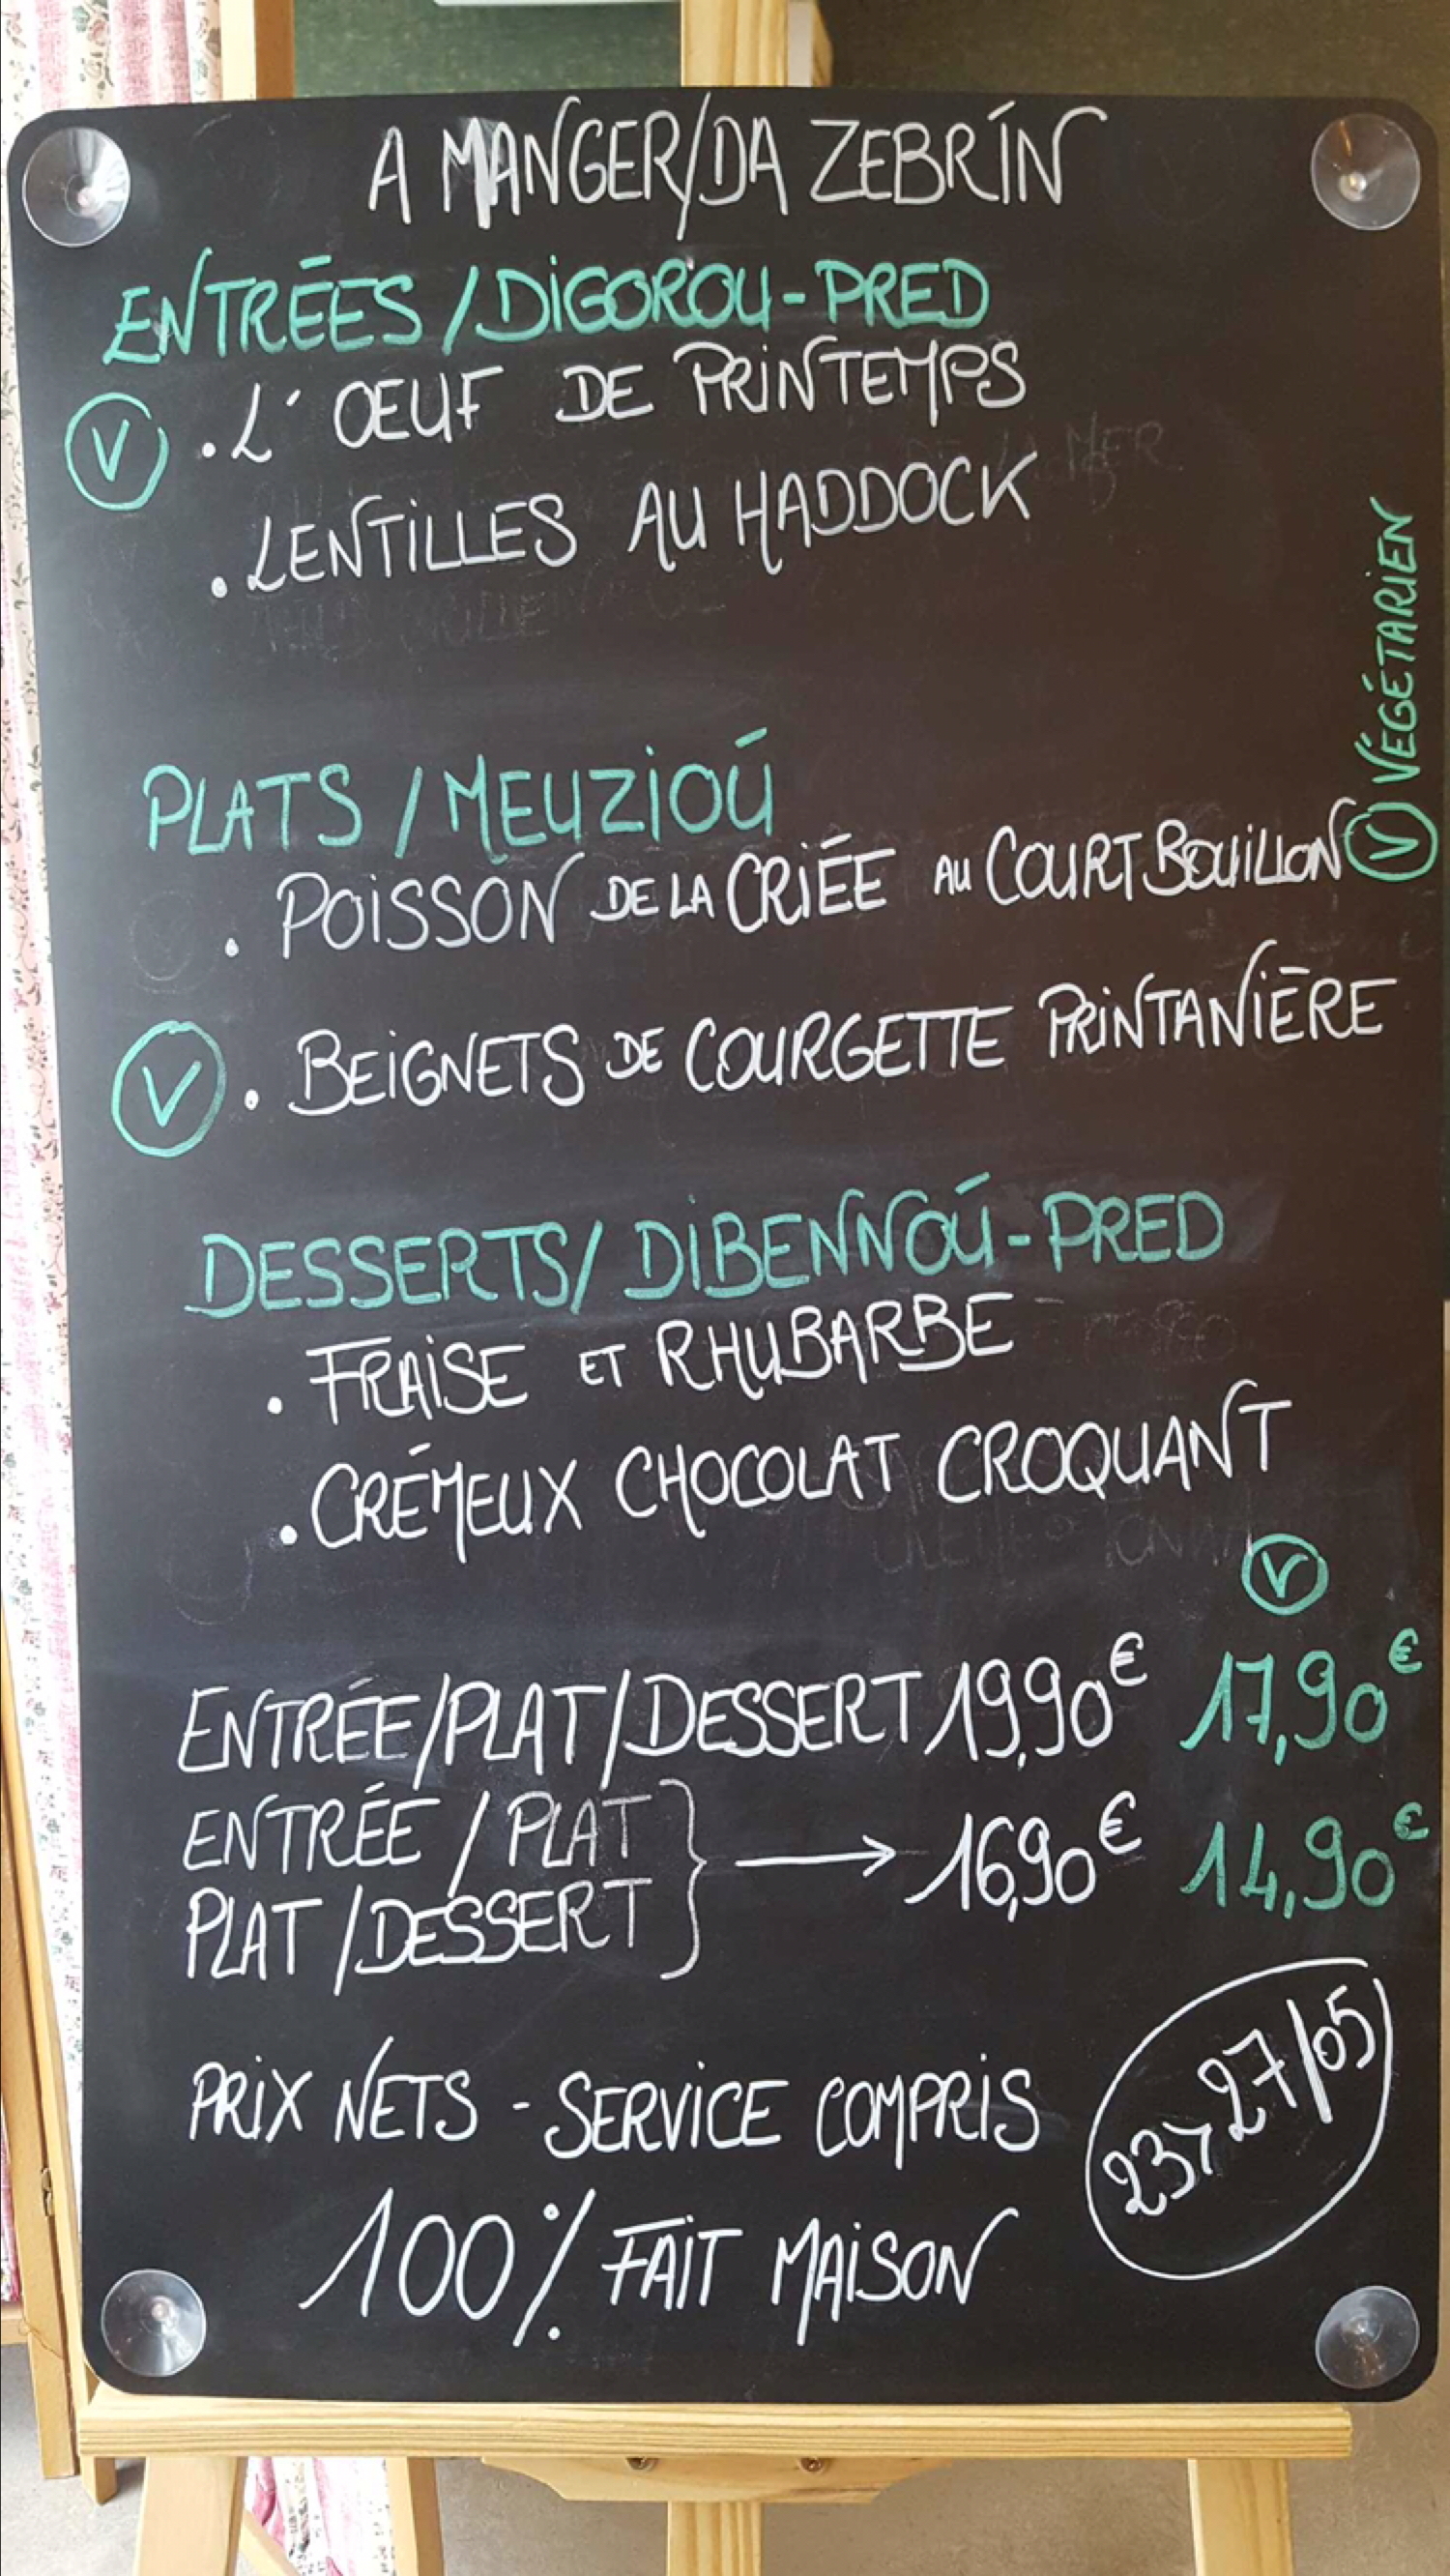 A MANGER/DA ZEBRIÑ
ENTRÉES / DIGOROU-PRED
Ⓥ . L'OEUF DE PRINTEMPS
. LENTILLES AU HADDOCK
Ⓥ VÉGÉTARIEN
PLATS / MEUZIOÚ
. POISSON DE LA CRIÉE AU COURT BOUILLON
Ⓥ . BEIGNETS DE COURGETTE PRINTANIÈRE
DESSERTS / DIBENNOÚ-PRED
. FRAISE ET RHUBARBE
. CRÉMEUX CHOCOLAT CROQUANT
Ⓥ
ENTRÉE/PLAT/DESSERT 19,90€ 17,90€
ENTRÉE / PLAT
PLAT / DESSERT } → 16,90€ 14,90€
PRIX NETS - SERVICE COMPRIS
23>27/05
100% FAIT MAISON